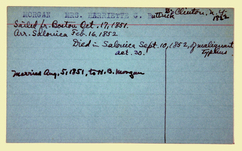 MORGAN MRS. HARRIETTE G. Buttrick B. Clinton, N.Y. 1832
Sailed fr. Boston Oct. 17, 1851.
Arr. Salonica Feb. 16, 1852
Died in Salonica Sept. 10, 1852, of malignant typhus
aet. 20.
Married Aug. 5, 1851, to H.B. Morgan